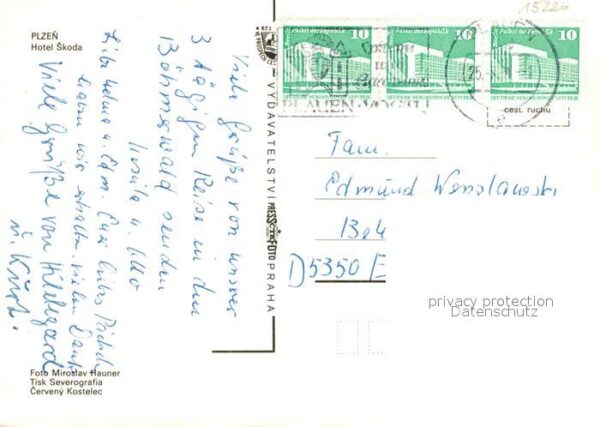 15220
PLZEŇ
Hotel Škoda
Palast der Republik 10
Palast der Republik 10
Palast der Republik 10
DEUTSCHE DEMOKRATISCHE REPUBLIK
DEUTSCHE DEMOKRATISCHE REPUBLIK
DEUTSCHE DEMOKRATISCHE REPUBLIK
PLAUEN-VOGTL
cest. ruchu
VYDAVATELSTVÍ PRESSFOTO PRAHA
Viele Grüße von unsrer
3 tägigen Reise in den
Böhmerwald senden
Ursula u. Otto
Liebe Helma u. Edm. Euer liebes Päckchen
haben wir erhalten. Vielen Dank
Viele Grüße von Hildegard
u. Kurt.
Fam.
Edmund
D5350 E
privacy protection
Datenschutz
Foto Miroslav Hauner
Tisk Severografia
Červený Kostelec